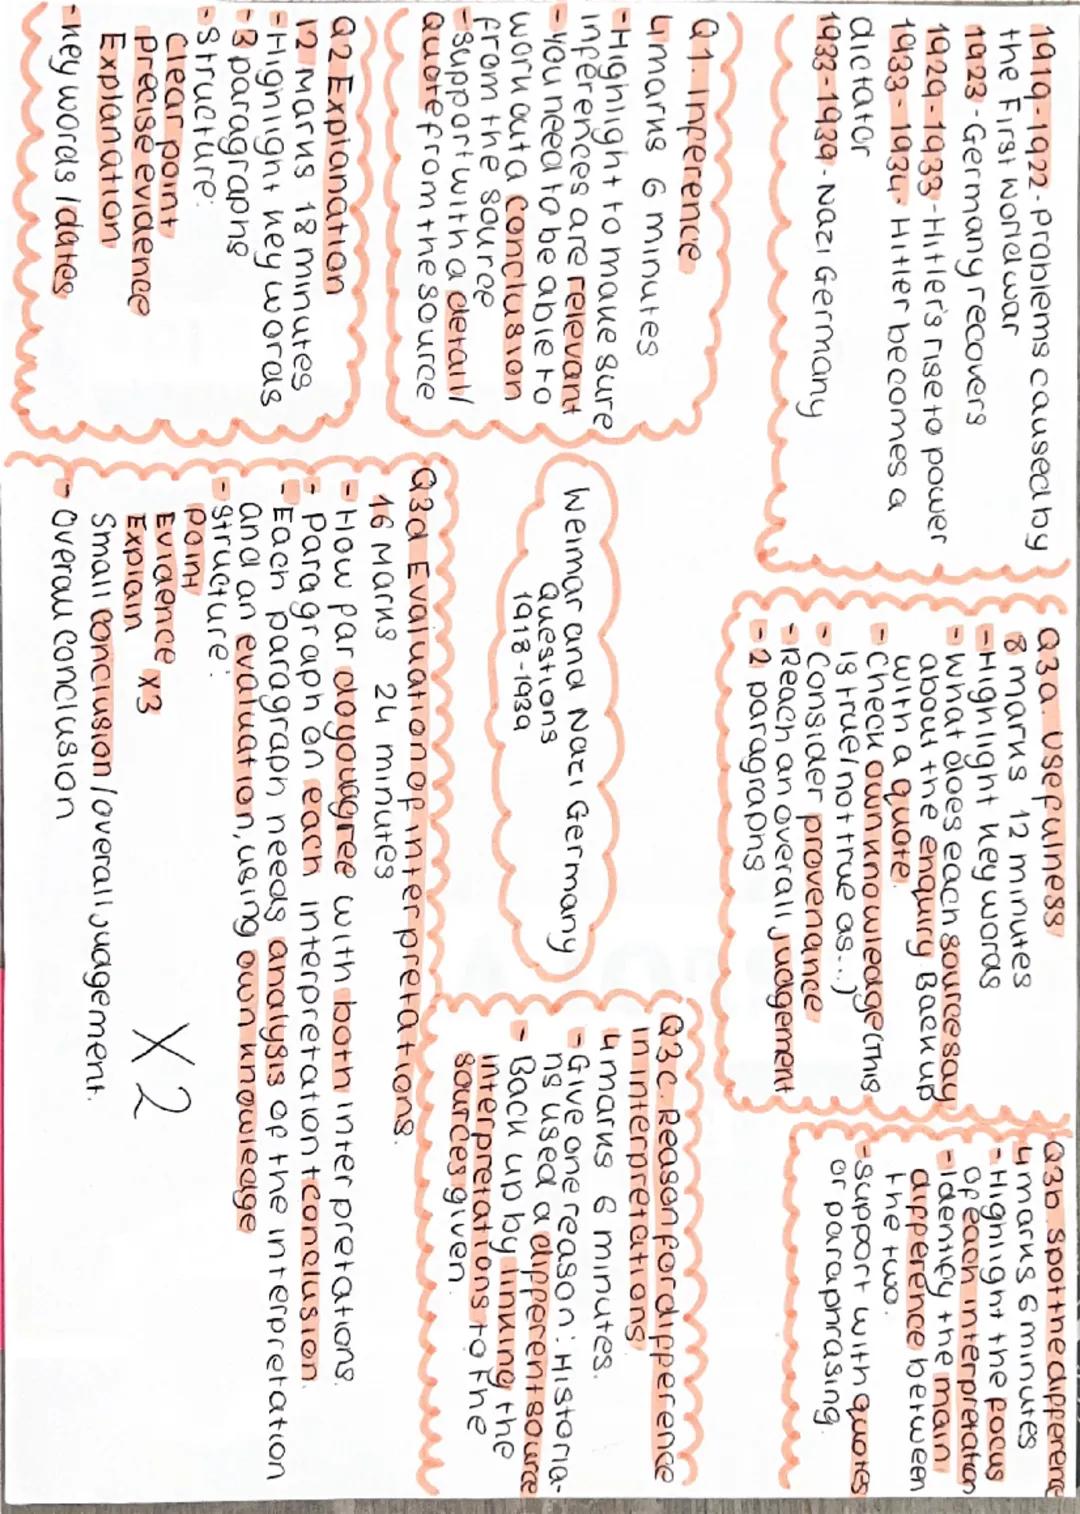 1919-1922-problems caused by
the First world war
1923-Germany recovers
1929-1933-Hitler's rise to power
1933-1934-Hitler becomes a
dictator
1933-1939-Nazi Germany
Q1. Inference
4 marks 6 minutes
-Highlight to make sure
inferences are relevant
-You need to be able to
work out a conclusion
from the source
-support with a detail/
Quote from the source
Q2 Explanation
12 marks 18 minutes
-Highlight key words
-3 paragraphs
-Structure:
Clear point
precise evidence
Explanation
-key words/dates
Q3a. Usefulness
8 marks 12 minutes
-Highlight key words
-What does each source say
about the enquiry Back up
with a quote.
-Check own knowledge (This
is true/not true as...)
-Consider provenance
-Reach an overall judgement
-2 paragraphs
Q3b. spot the difference
4 marks 6 minutes
-Highlight the focus
of each interpretation
-Identify the main
difference between
the two.
-support with quotes
or paraphrasing.
Weimar and Nazi Germany
Questions
1918-1939
Q3c. Reason for difference
in interpretations
4 marks 6 minutes.
-Give one reason: Historia-
ns used a different source
-Back up by linking the
interpretations to the
sources given.
Q3d Evaluation of interpretations.
16 Marks 24 minutes
-How far do you agree with both interpretations.
-Paragraph on each interpretation + conclusion.
-Each paragraph needs analysis of the interpretation
and an evaluation, using own knowledge
-structure:
point
Evidence x3
Explain
Small conclusion/overall judgement.
X2
-Overall conclusion